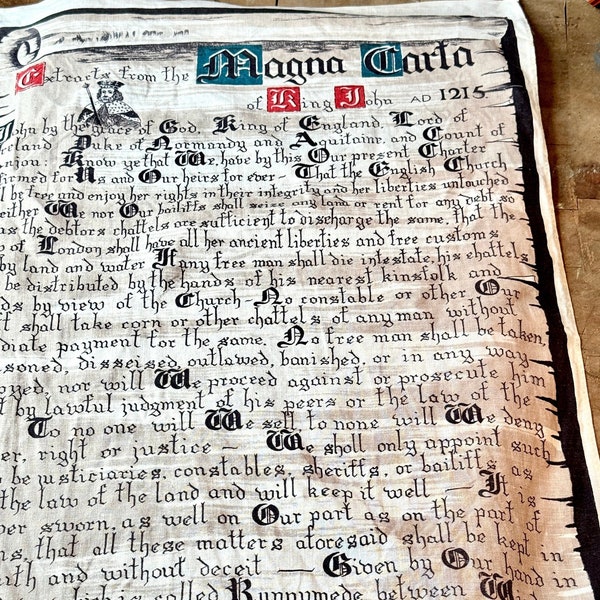 Extracts from the Magna Carta
of King John AD 1215
John by the grace of God, King of England, Lord of
reland Duke of Normandy and Aquitaine, and Count of
njou. Know ye that We, have by this Our present Charter
firmed for Us and Our heirs for ever – That the English Church
ll be free and enjoy her rights in their integrity and her liberties untouched
either We nor Our bailiffs shall seize any land or rent for any debt so
as the debtors chattels are sufficient to discharge the same, that the
y of London shall have all her ancient liberties and free customs
by land and water If any free man shall die intestate, his chattels
be distributed by the hands of his nearest kinsfolk and
ds by view of the Church – No constable or other Our
ff shall take corn or other chattels of any man without
diate payment for the same. No free man shall be taken,
soned, disseised, outlawed, banished, or in any way
oyed, nor will We proceed against or prosecute him
t by lawful judgment of his peers or the law of the
To no one will We sell to none will We deny
er, right or justice – We shall only appoint such
be justiciaries, constables, sheriffs, or bailiffs as
the law of the land and will keep it well – It is
er sworn, as well on Our part as on the part of
ns, that all these matters aforesaid shall be kept in
ith and without deceit – Given by Our hand in
which is called Runnymede between Wind